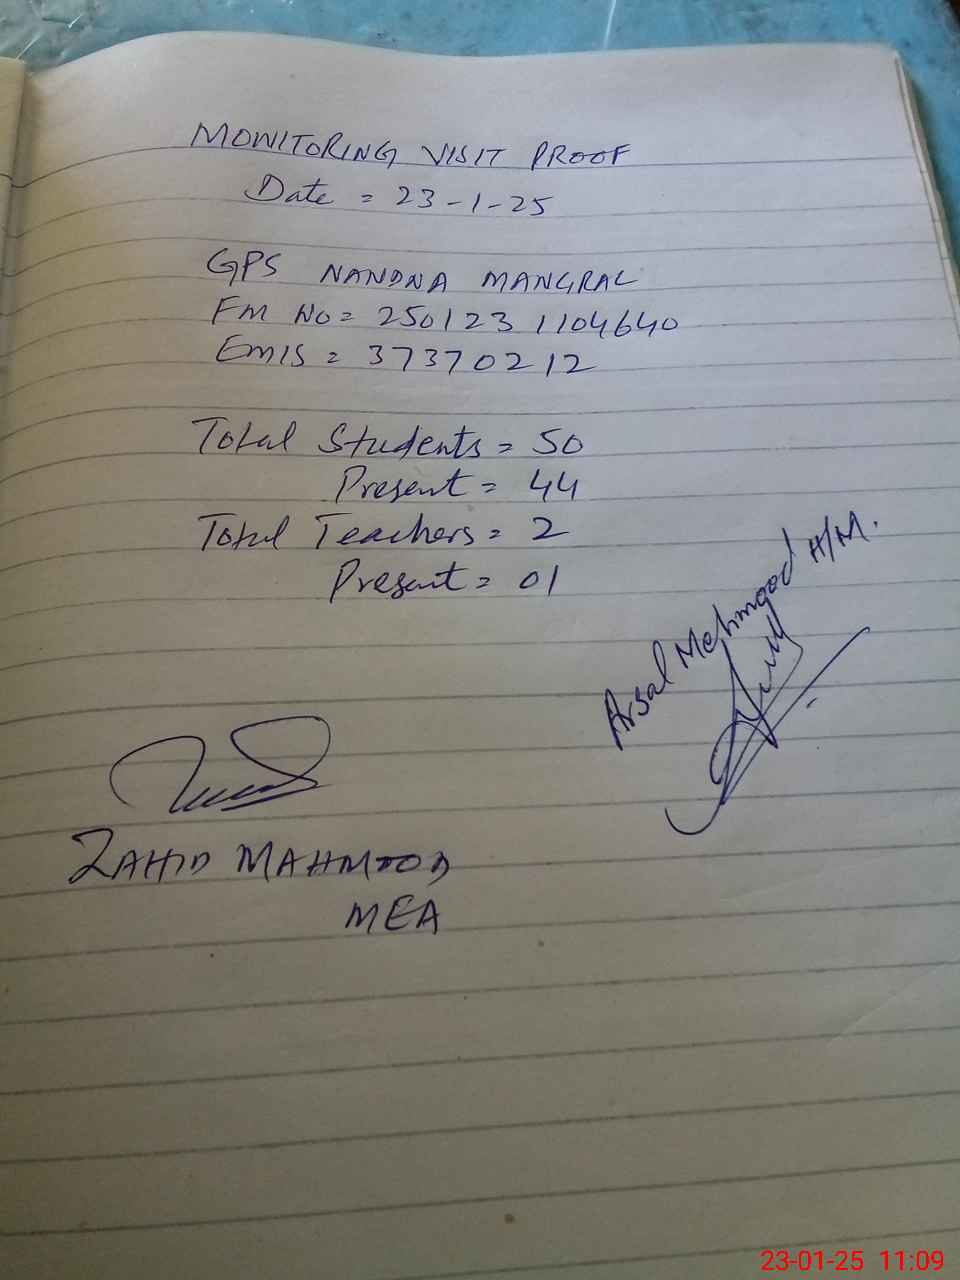 MONITORING VISIT PROOF
Date = 23-1-25
GPS NANDNA MANGRAL
FM No = 2501231104640
EMIS = 37370212
Total Students = 50
Present = 44
Total Teachers = 2
Present = 01
Arsal Mehmood H/M.
ZAHID MAHMOOD
MEA
23-01-25 11:09